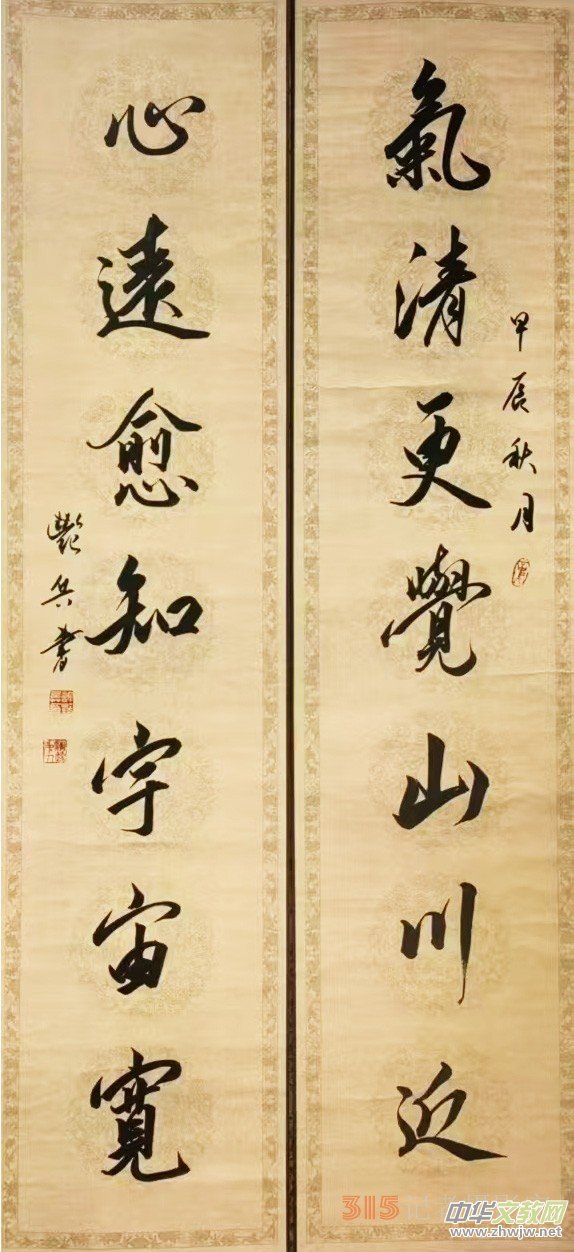 氣清更覺山川近
甲辰秋月
心遠愈知宇宙寬
艷兵書
315
中华文教网
www.zhwjw.net